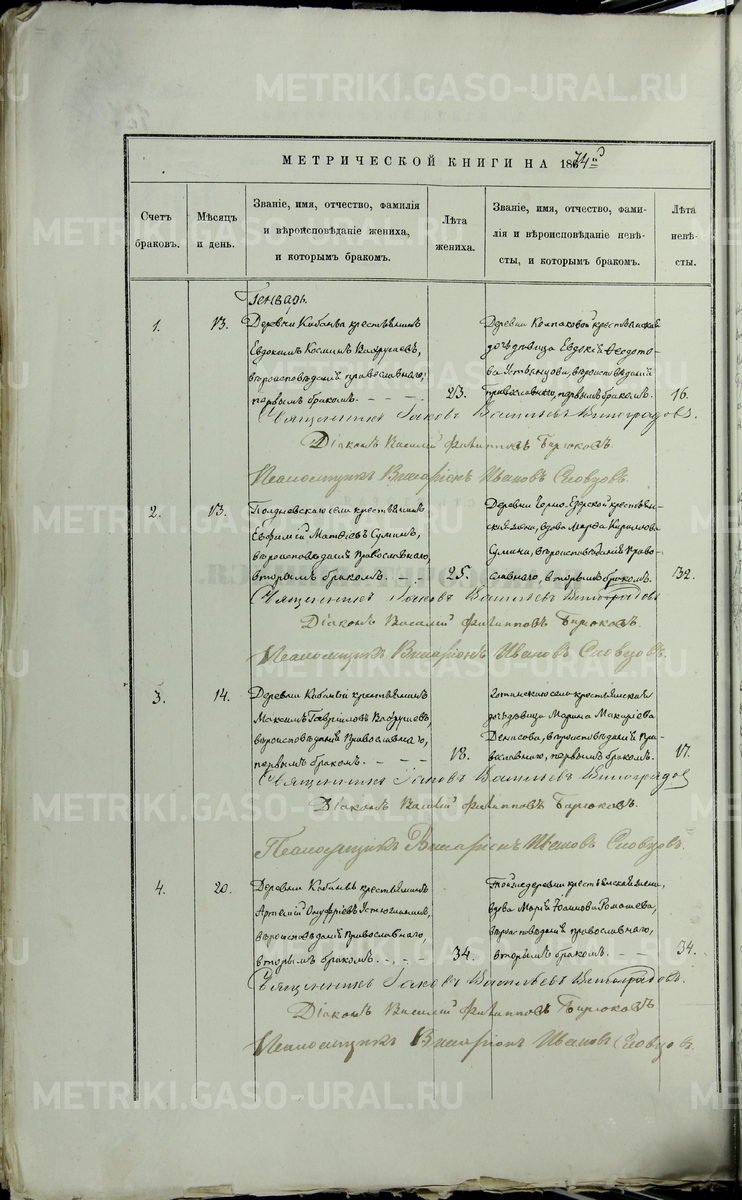 METRIKI.GASO-URAL.RU
МЕТРИЧЕСКОЙ КНИГИ НА 1874й
Счетъ браковъ.
Мѣсяцъ и день.
Званіе, имя, отчество, фамилія
и вѣроисповѣданіе жениха,
и которымъ бракомъ.
Лѣта жениха.
Званіе, имя, отчество, фами-
лія и вѣроисповѣданіе невѣ-
сты, и которымъ бракомъ.
Лѣта невѣ-
сты.
Генварь.
1. 13. Деревни крестьянинъ
Евдокимъ Косминъ Вахрушевъ,
вѣроисповѣданія православнаго,
первымъ бракомъ. 23.
Деревни Колпаковой крестьянская
дочь дѣвица Евдокія Ѳеодото-
ва вѣроисповѣданія
православнаго, первымъ бракомъ. 16.
Священникъ Іаковъ Васильевъ Виноградовъ.
Діаконъ Василій Филипповъ Бирюковъ.
Псаломщикъ Виссаріонъ Ивановъ Словцовъ.
2. 13. Полдневскаго села крестьянинъ
Евфимій Матѳіевъ Суминъ,
вѣроисповѣданія Православнаго,
вторымъ бракомъ. 25.
Деревни крестьян-
вдова Кирилова
Сумина, вѣроисповѣданія Право-
славнаго, вторымъ бракомъ. 32.
Священникъ Іаковъ Васильевъ Виноградовъ
Діаконъ Василій Филипповъ Бирюковъ.
Псаломщикъ Виссаріонъ Ивановъ Словцовъ.
3. 14. Деревни крестьянинъ
Максимъ Гавріиловъ Вахрушевъ,
вѣроисповѣданія Православнаго,
первымъ бракомъ. 18.
села крестьянская
дочь дѣвица Марина Макаріева
Денисова, вѣроисповѣданія Пра-
вославнаго, первымъ бракомъ. 17.
Священникъ Іаковъ Васильевъ Виноградовъ
Діаконъ Василій Филипповъ Бирюковъ.
Псаломщикъ Виссаріонъ Ивановъ Словцовъ.
4. 20. Деревни крестьянинъ
Артемій Онуфріевъ Устюжанинъ,
вѣроисповѣданія Православнаго,
вторымъ бракомъ. 34.
Той же деревни крестьянская жена,
вдова Марія Іоаннова Ромашева,
вѣроисповѣданія православнаго,
вторымъ бракомъ. 34.
Священникъ Іаковъ Васильевъ Виноградовъ.
Діаконъ Василій Филипповъ Бирюковъ
Псаломщикъ Виссаріонъ Ивановъ Словцовъ.